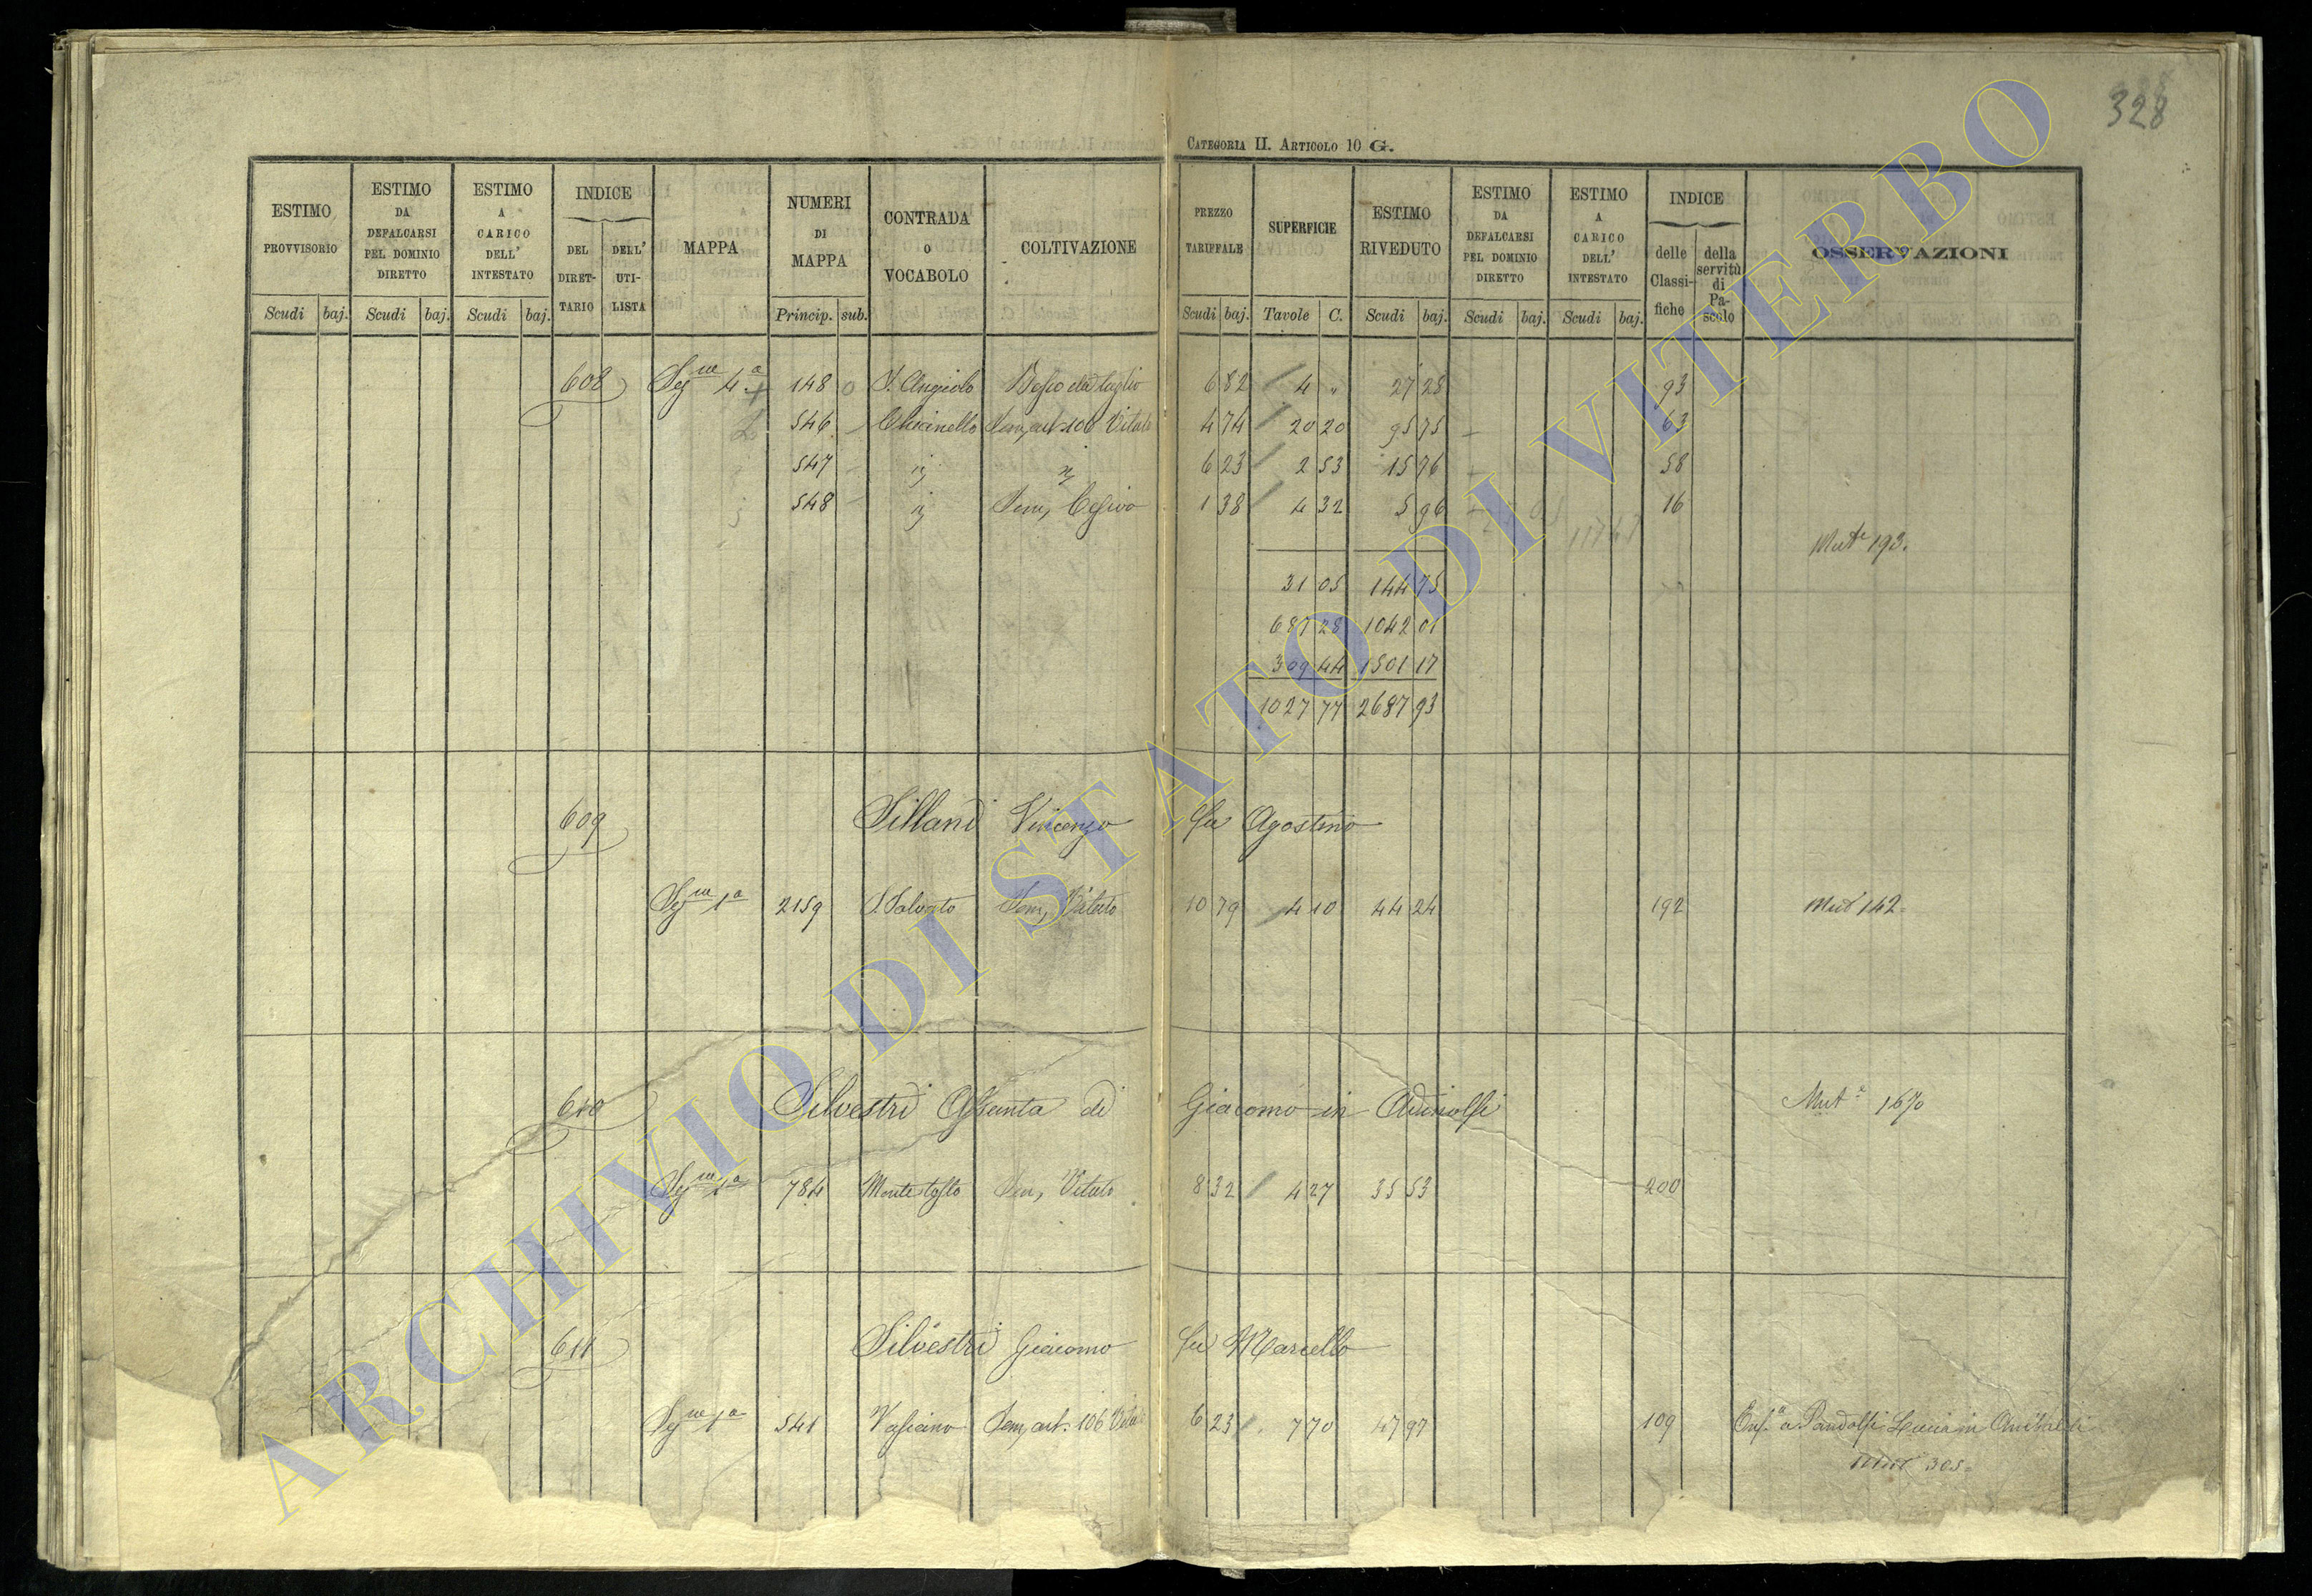 328
CATEGORIA II. ARTICOLO 10 G.
ESTIMO PROVVISORIO Scudi baj.
ESTIMO DA DEFALCARSI PEL DOMINIO DIRETTO Scudi baj.
ESTIMO A CARICO DELL' INTESTATO Scudi baj.
INDICE DEL DIRET-TARIO DELL' UTI-LISTA
MAPPA
NUMERI DI MAPPA Princip. sub.
CONTRADA O VOCABOLO
COLTIVAZIONE
PREZZO TARIFFALE Scudi baj.
SUPERFICIE Tavole C.
ESTIMO RIVEDUTO Scudi baj.
ESTIMO DA DEFALCARSI PEL DOMINIO DIRETTO Scudi baj.
ESTIMO A CARICO DELL' INTESTATO Scudi baj.
INDICE delle Classi-fiche della servitù di Pa-scolo
OSSERVAZIONI
608 Seg.ne 4a 148 S. Angiolo Bosco da taglio 6 82 4 „ 27 28 93
546 Chicinello Sem, art. 106 Vitato 4 74 20 20 95 75 63
547 ij ij 6 23 2 53 15 76 58
548 ij Sem, Cesivo 1 38 4 32 5 96 16
117 47
Mut.e 193.
31 05 144 75
687 28 1042 01
309 44 1501 17
1027 77 2687 93
609 Sillani Vincenzo fu Agostino
Seg.ne 1a 2159 S. Salvato Sem, Vitato 10 79 4 10 44 24 192 Mut 142
610 Silvestri Assunta di Giacomo in Adinolfi Mut.e 1670
Seg.ne 1a 784 Monte tosto Sem, Vitato 8 32 4 27 35 53 200
611 Silvestri Giacomo fu Marcello
Seg.ne 1a 541 Vasciano Sem, art. 106 Vitato 6 23 7 70 47 97 109 Enf.a a Pandolfi Lucia in Anibaldi
Mut 305
ARCHIVIO DI STATO DI VITERBO